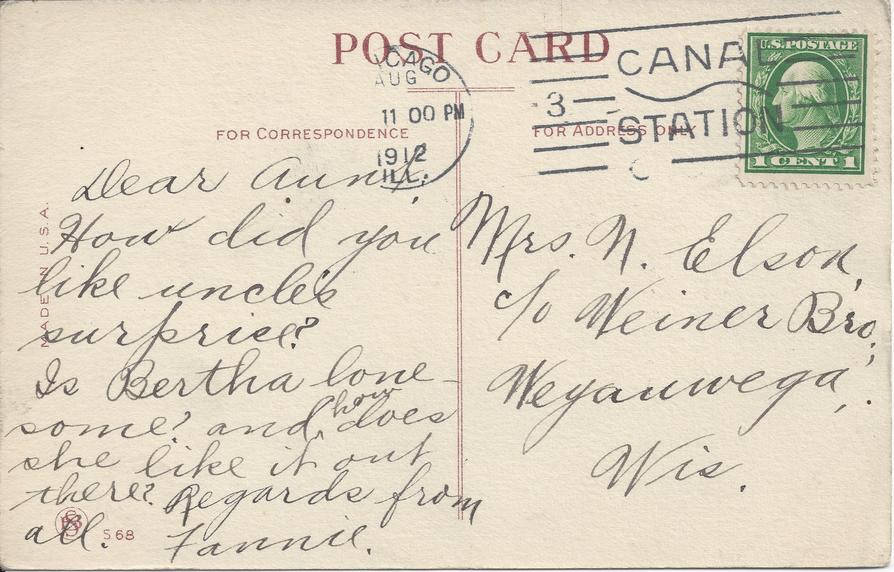 POST CARD
CANAL
STATION
3
U.S. POSTAGE
1 CENT 1
AUG
11 00 PM
1912
ILL.
FOR CORRESPONDENCE
FOR ADDRESS ONLY
MADE IN U.S.A.
Dear Aunt,
How did you
like uncle's
surprise?
Is Bertha lone-
some? and how does
she like it out
there? Regards from
all. Fannie.
S 68
Mrs. N. Elson,
c/o Weiner Bro,
Weyauwega,
Wis.